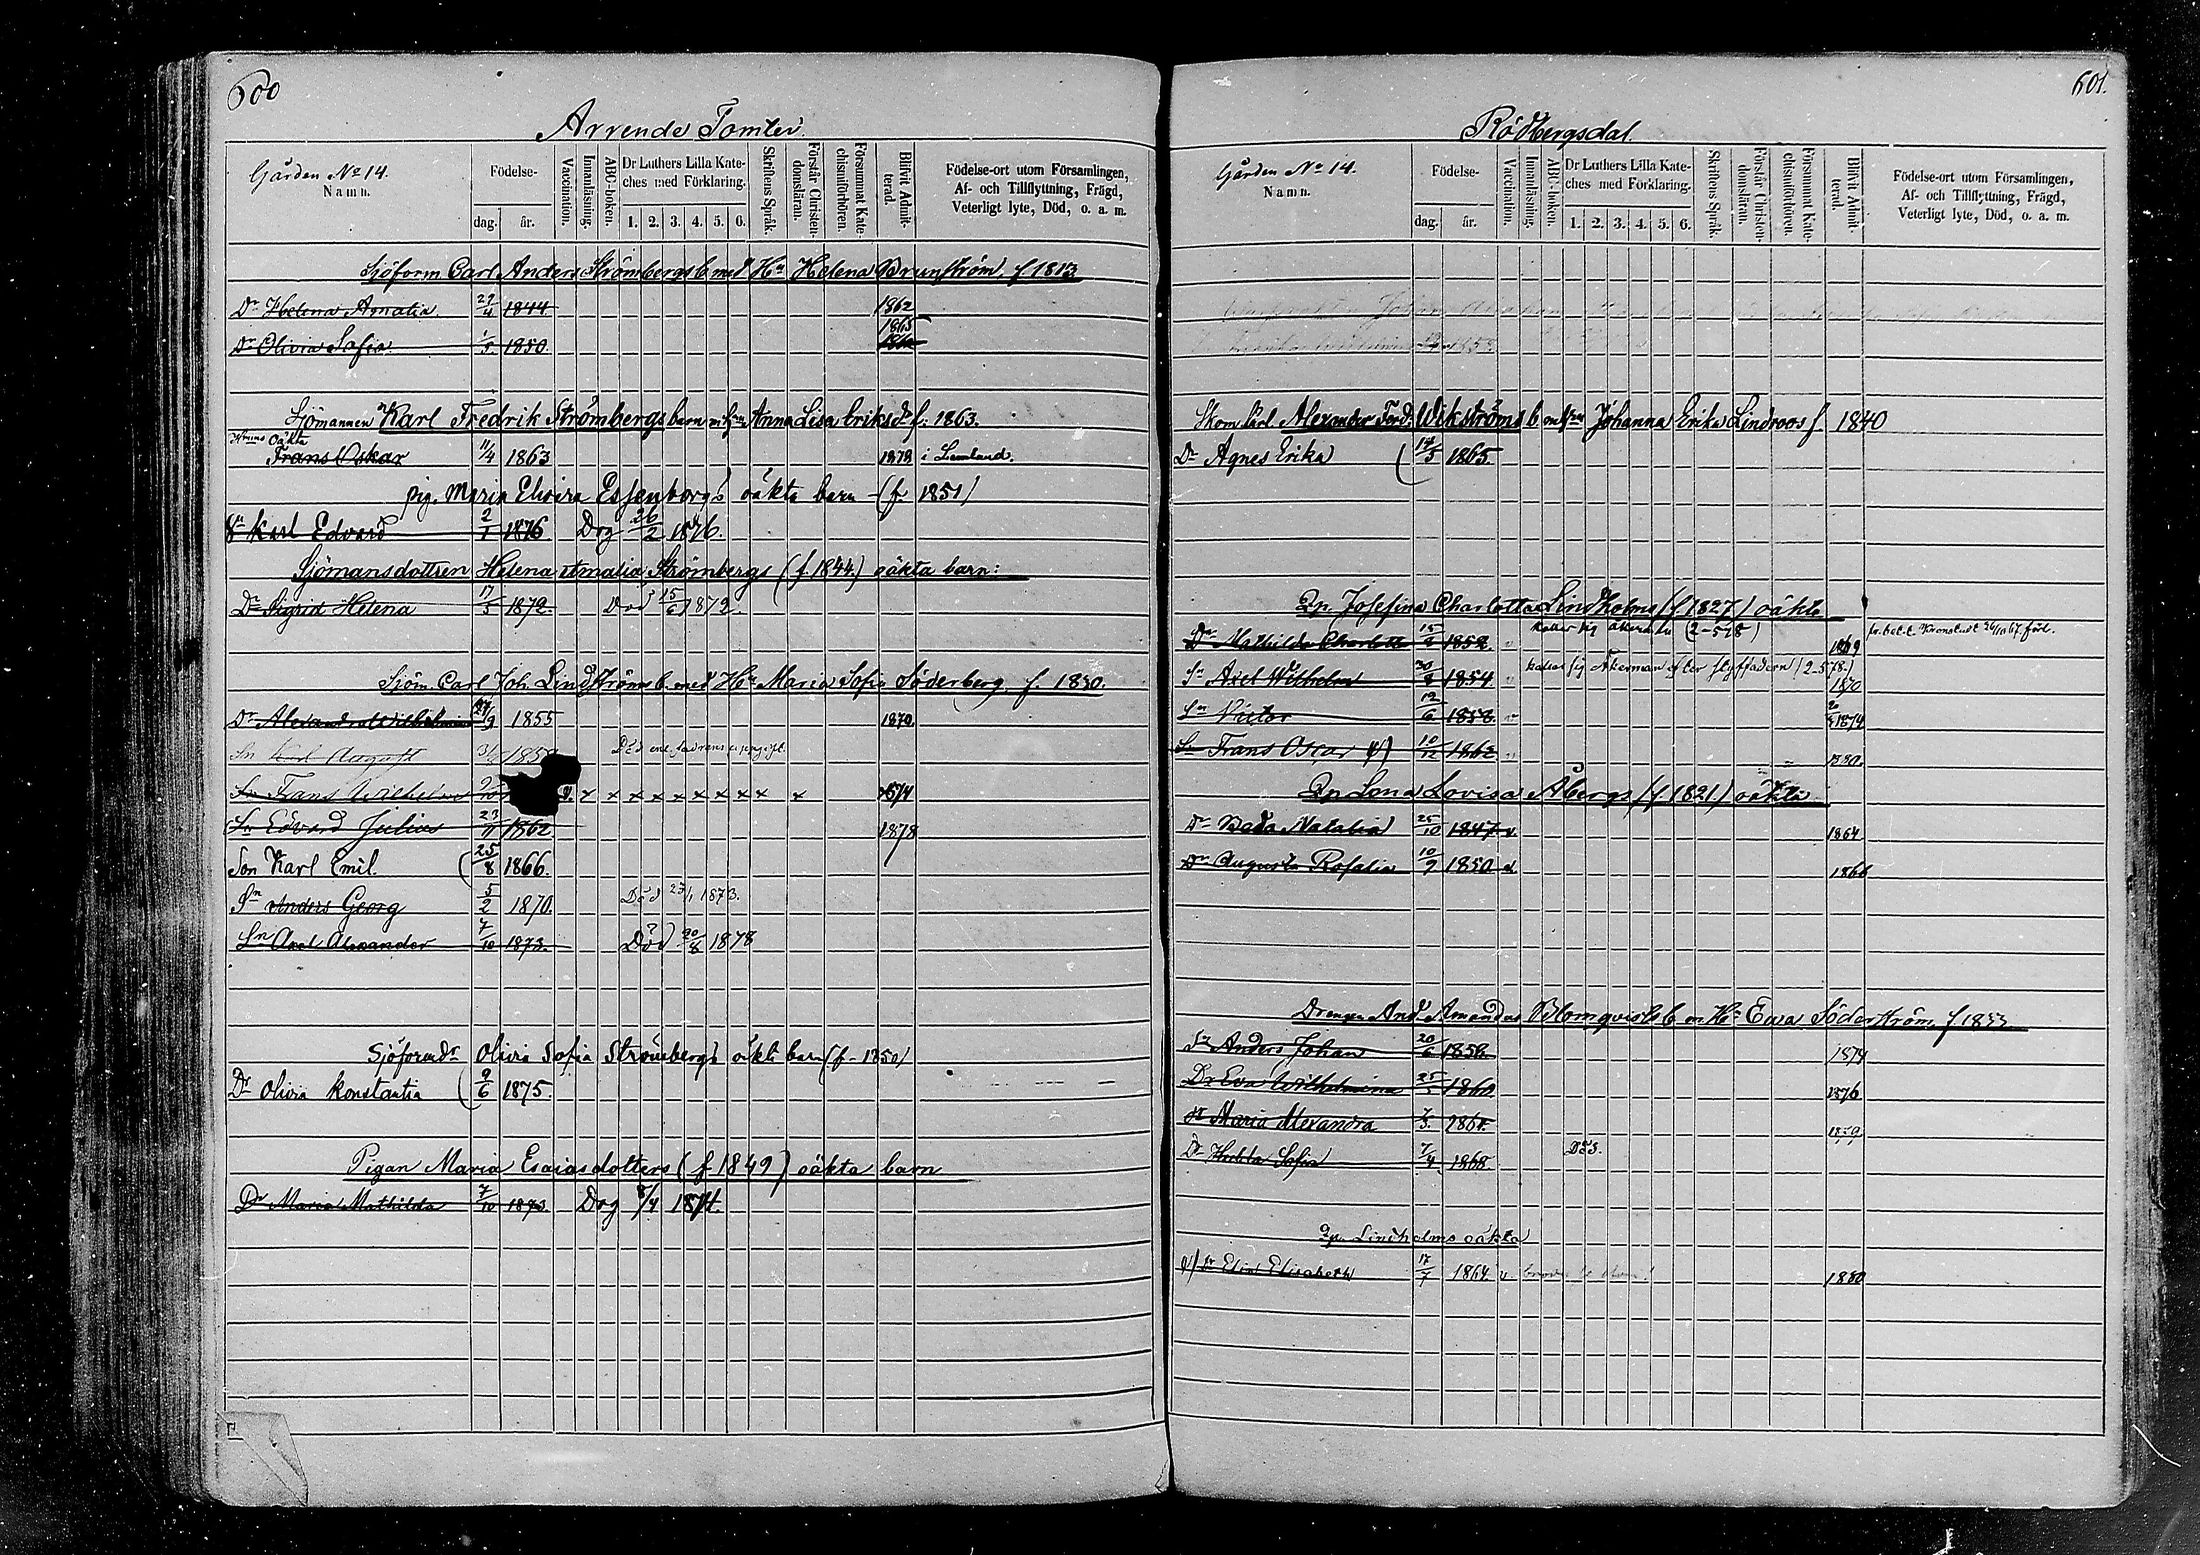 600
Arrende Tomter.
Gården No 14.
Namn.
Födelse-
dag.
år.
Vaccination.
Innanläsning.
ABC-boken.
Dr Luthers Lilla Kate-
ches med Förklaring.
1. 2. 3. 4. 5. 6.
Skriftens Språk.
Förstår Christen-
domsläran.
Försummat Kate-
chismiförhören.
Blifvit Admit-
terad.
Födelse-ort utom Församlingen,
Af- och Tillflyttning, Frägd,
Veterligt lyte, Död, o. a. m.
Sjöform Carl Anders Strömbergs b. med Hu Helena Brunström f 1813
Dr Helena Amalia 29/4 1844 1862
Dr Olivia Sofia 1/5 1850. 1865
Sjömannen Karl Fredrik Strömbergs barn m. hu Anna Lisa Eriksdr f. 1863.
oäkta
Frans Oskar 11/4 1863 1878 i Lemland.
pig. Maria Elvira Essenborgs oäkta barn (f. 1851)
Sn Karl Edvard 2/1 1876 Dog 26/2 1876.
Sjömansdottren Helena Amalia Strömbergs (f 1844.) oäkta barn:
Dr Sigrid Helena 17/5 1872. Död 15/6 1872.
Sjöm. Carl Joh. Lindströms b. med Hu Maria Sofia Söderberg. f. 1830.
Dr Alexandra Wilhelmina 1855 1870.
Sn Karl August 31/ 185 Död enl. fadrens uppgift.
Sn Frans Wilhelm v. x x x x x x x x x x 1874
Sn Edvard Julius 23/11 1862 1878
Son Karl Emil. (25/8 1866.
Sn Anders Georg 5/2 1870. Död 23/1 1873.
Sn Axel Alexander 7/10 1873. Död 20/8 1878
Sjöforadr Olivia Sofia Strömbergs oäkta barn (f. 1850)
Dr Olivia Konstantia (9/6 1875.
Pigan Maria Esaiasdotters (f 1849) oäkta barn
Dr Maria Mathilda 7/10 1873. Dog 8/4 1874.
601.
Rödbergsdal.
Gården No 14.
Namn.
Födelse-
dag.
år.
Vaccination.
Innanläsning.
ABC-boken.
Dr Luthers Lilla Kate-
ches med Förklaring.
1. 2. 3. 4. 5. 6.
Skriftens Språk.
Förstår Christen-
domsläran.
Försummat Kate-
chismiförhören.
Blifvit Admit-
terad.
Födelse-ort utom Församlingen,
Af- och Tillflyttning, Frägd,
Veterligt lyte, Död, o. a. m.
Skom.lärl. Alexander Ferd. Wikströms b. m. hu Johanna Erika Lindroos f. 1840
Dr Agnes Erika (14/5 1865.
Qp. Josefina Charlotta Lindholms (f 1827) oäkta
kallar sig Åkerman (2-578)
Dr Mathilda Charlotta 15/9 1852. v 1869 fr. bet. t. Kronstadt 26/10 67. förl.
kallar sig Åkerman efter styffadern (2-578.)
Sn Axel Wilhelm 30/8 1854 v 1870
Sn Victor 12/6 1858. v 1874
Sn Frans Oscar φ) 10/12 1862 v 1880.
Qp Lena Lovisa Åbergs (f 1821) oäkta
Dr Beda Natalia 25/10 1847 v. 1864
Dr Augusta Rosalia 10/9 1850 v. 1866
Drengen And. Amandus Blomqvists b m Hu Eva Söderström f 1833
Sn Anders Johan 20/6 1858. 1874
Dr Eva Wilhelmina 25/5 1860 1876
Dr Maria Alexandra 7/3. 1864.
Dr Hulda Sofia 7/4 1868. Död.
Qp. Lindholms oäkta
φ) Dr Elin Elisabeth 17/7 1864 v. 1880